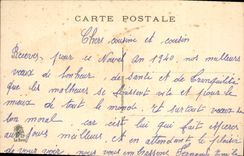 CARTE POSTALE
Chers cousine et cousin
Recevez pour ce Nouvel an 1940, nos meilleurs
vœux de bonheur de santé et de tranquilité que
les malheurs se finissent vite et pour le
mieux de tout le monde et surtout ayez le
bon moral car c'est lui qui fait espérer
aux jours meilleurs. Et en attendant le plaisir
de vous voir nous vous embrassons